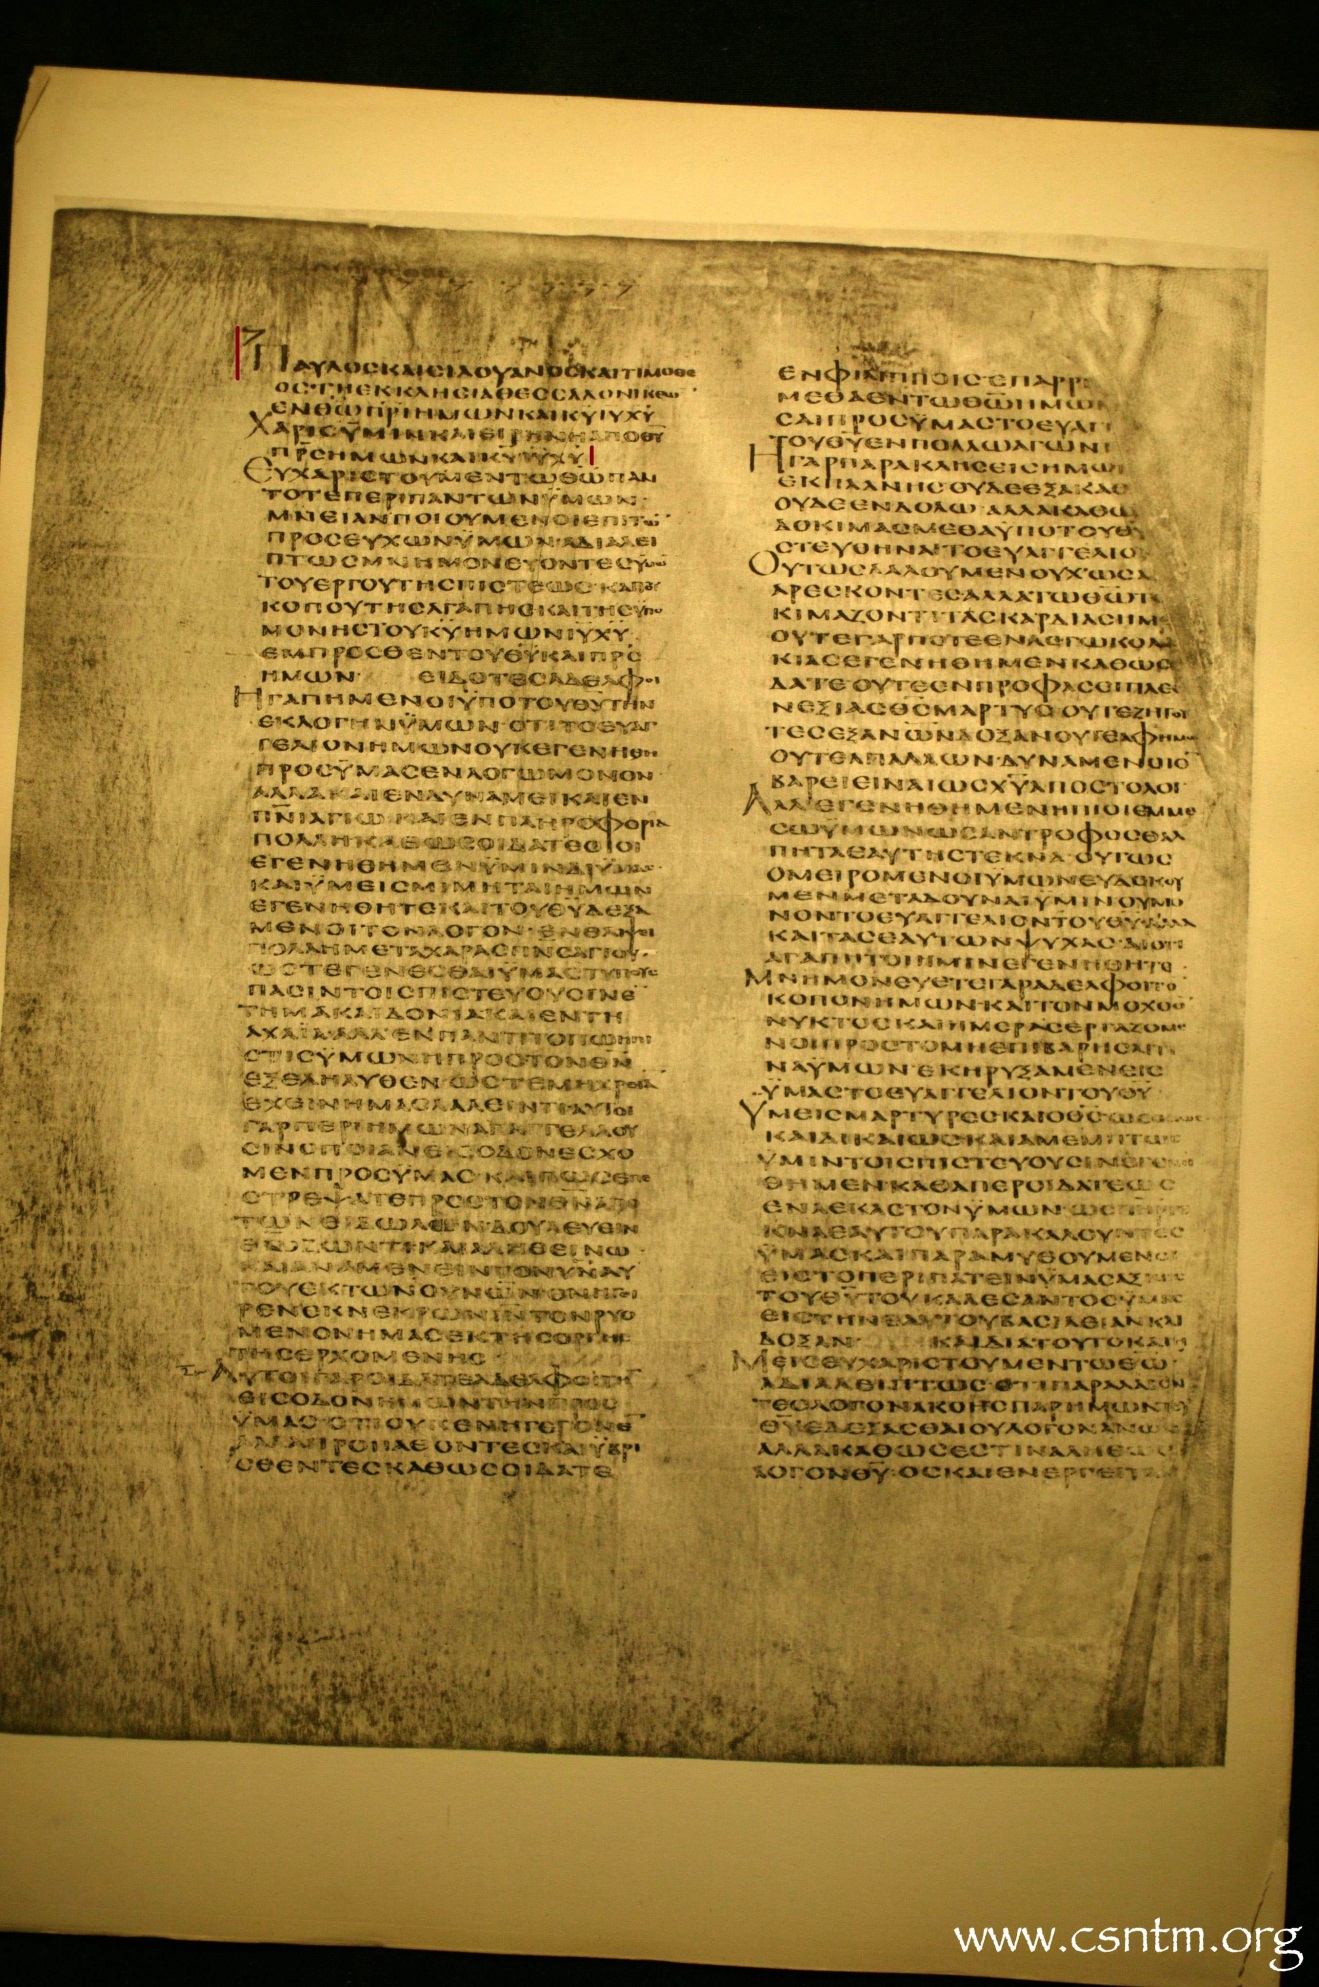 ΠΑΥΛΟΣΚΑΙΣΙΛΟΥΑΝΟΣΚΑΙΤΙΜΟΘΕ
ΟΣΤΗΕΚΚΛΗΣΙΑΘΕΣΣΑΛΟΝΙΚΕΩ
ΕΝΘΩΠΡΙΗΜΩΝΚΑΙΚΥΙΥΧΥ
ΧΑΡΙΣΫΜΙΝΚΑΙΕΙΡΗΝΗΑΠΟΘΥ
ΠΡΣΗΜΩΝΚΑΙΚΥΙΥΧΥ
ΕΥΧΑΡΙΣΤΟΥΜΕΝΤΩΘΩΠΑΝ
ΤΟΤΕΠΕΡΙΠΑΝΤΩΝΫΜΩΝ
ΜΝΕΙΑΝΠΟΙΟΥΜΕΝΟΙΕΠΙΤΩ
ΠΡΟΣΕΥΧΩΝΫΜΩΝΑΔΙΑΛΕΙ
ΠΤΩΣΜΝΗΜΟΝΕΥΟΝΤΕΣΫΜΩ
ΤΟΥΕΡΓΟΥΤΗΣΠΙΣΤΕΩΣ
ΚΟΠΟΥΤΗΣΑΓΑΠΗΣΚΑΙΤΗΣΫΠΟ
ΜΟΝΗΣΤΟΥΚΥΗΜΩΝΙΥΧΥ
ΕΜΠΡΟΣΘΕΝΤΟΥΘΥΚΑΙΠΡΣ
ΗΜΩΝ ΕΙΔΟΤΕΣΑΔΕΛΦΟΙ
ΗΓΑΠΗΜΕΝΟΙΫΠΟΤΟΥΘΥΤΗΝ
ΕΚΛΟΓΗΝΫΜΩΝΟΤΙΤΟΕΥΑΓ
ΓΕΛΙΟΝΗΜΩΝΟΥΚΕΓΕΝΗΘΗ
ΠΡΟΣΫΜΑΣΕΝΛΟΓΩΜΟΝΟΝ
ΑΛΛΑΚΑΙΕΝΔΥΝΑΜΕΙΚΑΙΕΝ
ΠΝΙΑΓΙΩΚΑΙΕΝΠΛΗΡΟΦΟΡΙΑ
ΠΟΛΛΗΚΑΘΩΣΟΙΔΑΤΕΟΙΟΙ
ΕΓΕΝΗΘΗΜΕΝΫΜΙΝΔΙΫΜΑΣ
ΚΑΙΫΜΕΙΣΜΙΜΗΤΑΙΗΜΩΝ
ΕΓΕΝΗΘΗΤΕΚΑΙΤΟΥΘΥΔΕΞΑ
ΜΕΝΟΙΤΟΝΛΟΓΟΝΕΝΘΛΙΨΕΙ
ΠΟΛΛΗΜΕΤΑΧΑΡΑΣΠΝΣΑΓΙΟΥ
ΩΣΤΕΓΕΝΕΣΘΑΙΫΜΑΣΤΥΠΟΥΣ
ΠΑΣΙΝΤΟΙΣΠΙΣΤΕΥΟΥΣΙΝΕ
ΤΗΜΑΚΑΙΔΟΝΙΑΚΑΙΕΝΤΗ
ΑΧΑΪΑΑΛΛΕΝΠΑΝΤΙΤΟΠΩΗΠΙ
ΣΤΙΣΫΜΩΝΗΠΡΟΣΤΟΝΘΝ
ΕΞΕΛΗΛΥΘΕΝΩΣΤΕΜΗΧΡΕΙΑ
ΕΧΕΙΝΗΜΑΣΛΑΛΕΙΝΤΙΑΥΤΟΙ
ΓΑΡΠΕΡΙΗΜΩΝΑΠΑΓΓΕΛΛΟΥ
ΣΙΝΟΠΟΙΑΝΕΙΣΟΔΟΝΕΣΧΟ
ΜΕΝΠΡΟΣΫΜΑΣΚΑΙΠΩΣΕΠΕ
ΣΤΡΕΨΑΤΕΠΡΟΣΤΟΝΘΝΑΠΟ
ΤΩΝΕΙΔΩΛΩΝΔΟΥΛΕΥΕΙΝ
ΘΩΖΩΝΤΙΚΑΙΑΛΗΘΕΙΝΩ
ΚΑΙΑΝΑΜΕΝΕΙΝΤΟΝΥΝΑΥ
ΤΟΥΕΚΤΩΝΟΥΝΩΝΟΝΗΓΕΙ
ΡΕΝΕΚΝΕΚΡΩΝΙΝΤΟΝΡΥΟ
ΜΕΝΟΝΗΜΑΣΕΚΤΗΣΟΡΓΗΣ
ΤΗΣΕΡΧΟΜΕΝΗΣ
ΑΥΤΟΙΓΑΡΟΙΔΑΤΕΑΔΕΛΦΟΙΤΗ
ΕΙΣΟΔΟΝΗΜΩΝΤΗΝΠΡΟΣ
ΫΜΑΣΟΤΙΟΥΚΕΝΗΓΕΓΟΝΕ
ΑΛΛΑΠΡΟΠΑΘΟΝΤΕΣΚΑΙΫΒΡΙ
ΣΘΕΝΤΕΣΚΑΘΩΣΟΙΔΑΤΕ
ΕΝΦΙΛΙΠΠΟΙΣΕΠΑΡΡΗ
ΜΕΘΑΕΝΤΩΘΩΗΜΩΝ
ΣΑΙΠΡΟΣΫΜΑΣΤΟΕΥΑΓΓ
ΤΟΥΘΥΕΝΠΟΛΛΩΑΓΩΝΙ
ΗΓΑΡΠΑΡΑΚΛΗΣΕΙΣΗΜΩΝ
ΕΚΠΛΑΝΗΣΟΥΔΕΕΞΑΚΑΘ
ΟΥΔΕΕΝΔΟΛΩΑΛΛΑΚΑΘΩ
ΔΟΚΙΜΑΣΜΕΘΑΫΠΟΤΟΥΘΥ
ΣΤΕΥΘΗΝΑΙΤΟΕΥΑΓΓΕΛΙΟ
ΟΥΤΩΣΛΑΛΟΥΜΕΝΟΥΧΩΣΑ
ΑΡΕΣΚΟΝΤΕΣΑΛΛΑΤΩΘΩ
ΚΙΜΑΖΟΝΤΙΤΑΣΚΑΡΔΙΑΣΗΜ
ΟΥΤΕΓΑΡΠΟΤΕΕΝΛΟΓΩΚΟΛΑ
ΚΙΑΣΕΓΕΝΗΘΗΜΕΝΚΑΘΩΣ
ΔΑΤΕΟΥΤΕΕΝΠΡΟΦΑΣΕΙΠΛΕΟ
ΝΕΞΙΑΣΘΣΜΑΡΤΥΣΟΥΤΕΖΗΤΟΥ
ΤΕΣΕΞΑΝΩΝΔΟΞΑΝΟΥΤΕΑΦΗΜΩ
ΟΥΤΕΑΠΑΛΛΩΝΔΥΝΑΜΕΝΟΙΕ
ΒΑΡΕΙΕΙΝΑΙΩΣΧΥΑΠΟΣΤΟΛΟΙ
ΑΛΛΕΓΕΝΗΘΗΜΕΝΗΠΙΟΙΕΜΜΕ
ΣΩΫΜΩΝΩΣΑΝΤΡΟΦΟΣΘΑΛ
ΠΗΤΑΕΑΥΤΗΣΤΕΚΝΑΟΥΤΩΣ
ΟΜΕΙΡΟΜΕΝΟΙΫΜΩΝΕΥΔΟΚΟΥ
ΜΕΝΜΕΤΑΔΟΥΝΑΙΫΜΙΝΟΥΜΟ
ΝΟΝΤΟΕΥΑΓΓΕΛΙΟΝΤΟΥΘΥΑΛΛΑ
ΚΑΙΤΑΣΕΑΥΤΩΝΨΥΧΑΣΔΙΟΤΙ
ΑΓΑΠΗΤΟΙΗΜΙΝΕΓΕΝΗΘΗΤΕ
ΜΝΗΜΟΝΕΥΕΤΕΓΑΡΑΔΕΛΦΟΙΤΟ
ΚΟΠΟΝΗΜΩΝΚΑΙΤΟΝΜΟΧΘΟ
ΝΥΚΤΟΣΚΑΙΗΜΕΡΑΣΕΡΓΑΖΟΜΕ
ΝΟΙΠΡΟΣΤΟΜΗΕΠΙΒΑΡΗΣΑΙΤΙ
ΝΑΫΜΩΝΕΚΗΡΥΞΑΜΕΝΕΙΣ
ΫΜΑΣΤΟΕΥΑΓΓΕΛΙΟΝΤΟΥΘΥ
ΫΜΕΙΣΜΑΡΤΥΡΕΣΚΑΙΟΘΣ
ΚΑΙΔΙΚΑΙΩΣΚΑΙΑΜΕΜΠΤΩΣ
ΫΜΙΝΤΟΙΣΠΙΣΤΕΥΟΥΣΙΝΕΓΕΝΗ
ΘΗΜΕΝΚΑΘΑΠΕΡΟΙΔΑΤΕΩΣ
ΕΝΑΕΚΑΣΤΟΝΫΜΩΝΩΣ
ΚΝΑΕΑΥΤΟΥΠΑΡΑΚΑΛΟΥΝΤΕΣ
ΫΜΑΣΚΑΙΠΑΡΑΜΥΘΟΥΜΕΝΟΙ
ΕΙΣΤΟΠΕΡΙΠΑΤΕΙΝΫΜΑΣΑΞΙΩΣ
ΤΟΥΘΥΤΟΥΚΑΛΕΣΑΝΤΟΣΫΜΑΣ
ΕΙΣΤΗΝΕΑΥΤΟΥΒΑΣΙΛΕΙΑΝΚΑΙ
ΔΟΞΑΝ ΚΑΙΔΙΑΤΟΥΤΟΚΑΙΗ
ΜΕΙΣΕΥΧΑΡΙΣΤΟΥΜΕΝΤΩΘΩ
ΑΔΙΑΛΕΙΠΤΩΣΟΤΙΠΑΡΑΛΑΒΟΝ
ΤΕΣΛΟΓΟΝΑΚΟΗΣΠΑΡΗΜΩΝΤΟΥ
ΘΥΕΔΕΞΑΣΘΑΙΟΥΛΟΓΟΝΑΝΩ
ΑΛΛΑΚΑΘΩΣΕΣΤΙΝΑΛΗΘΩΣ
ΛΟΓΟΝΘΥΟΣΚΑΙΕΝΕΡΓΕΙΤΑΙ
www.csntm.org